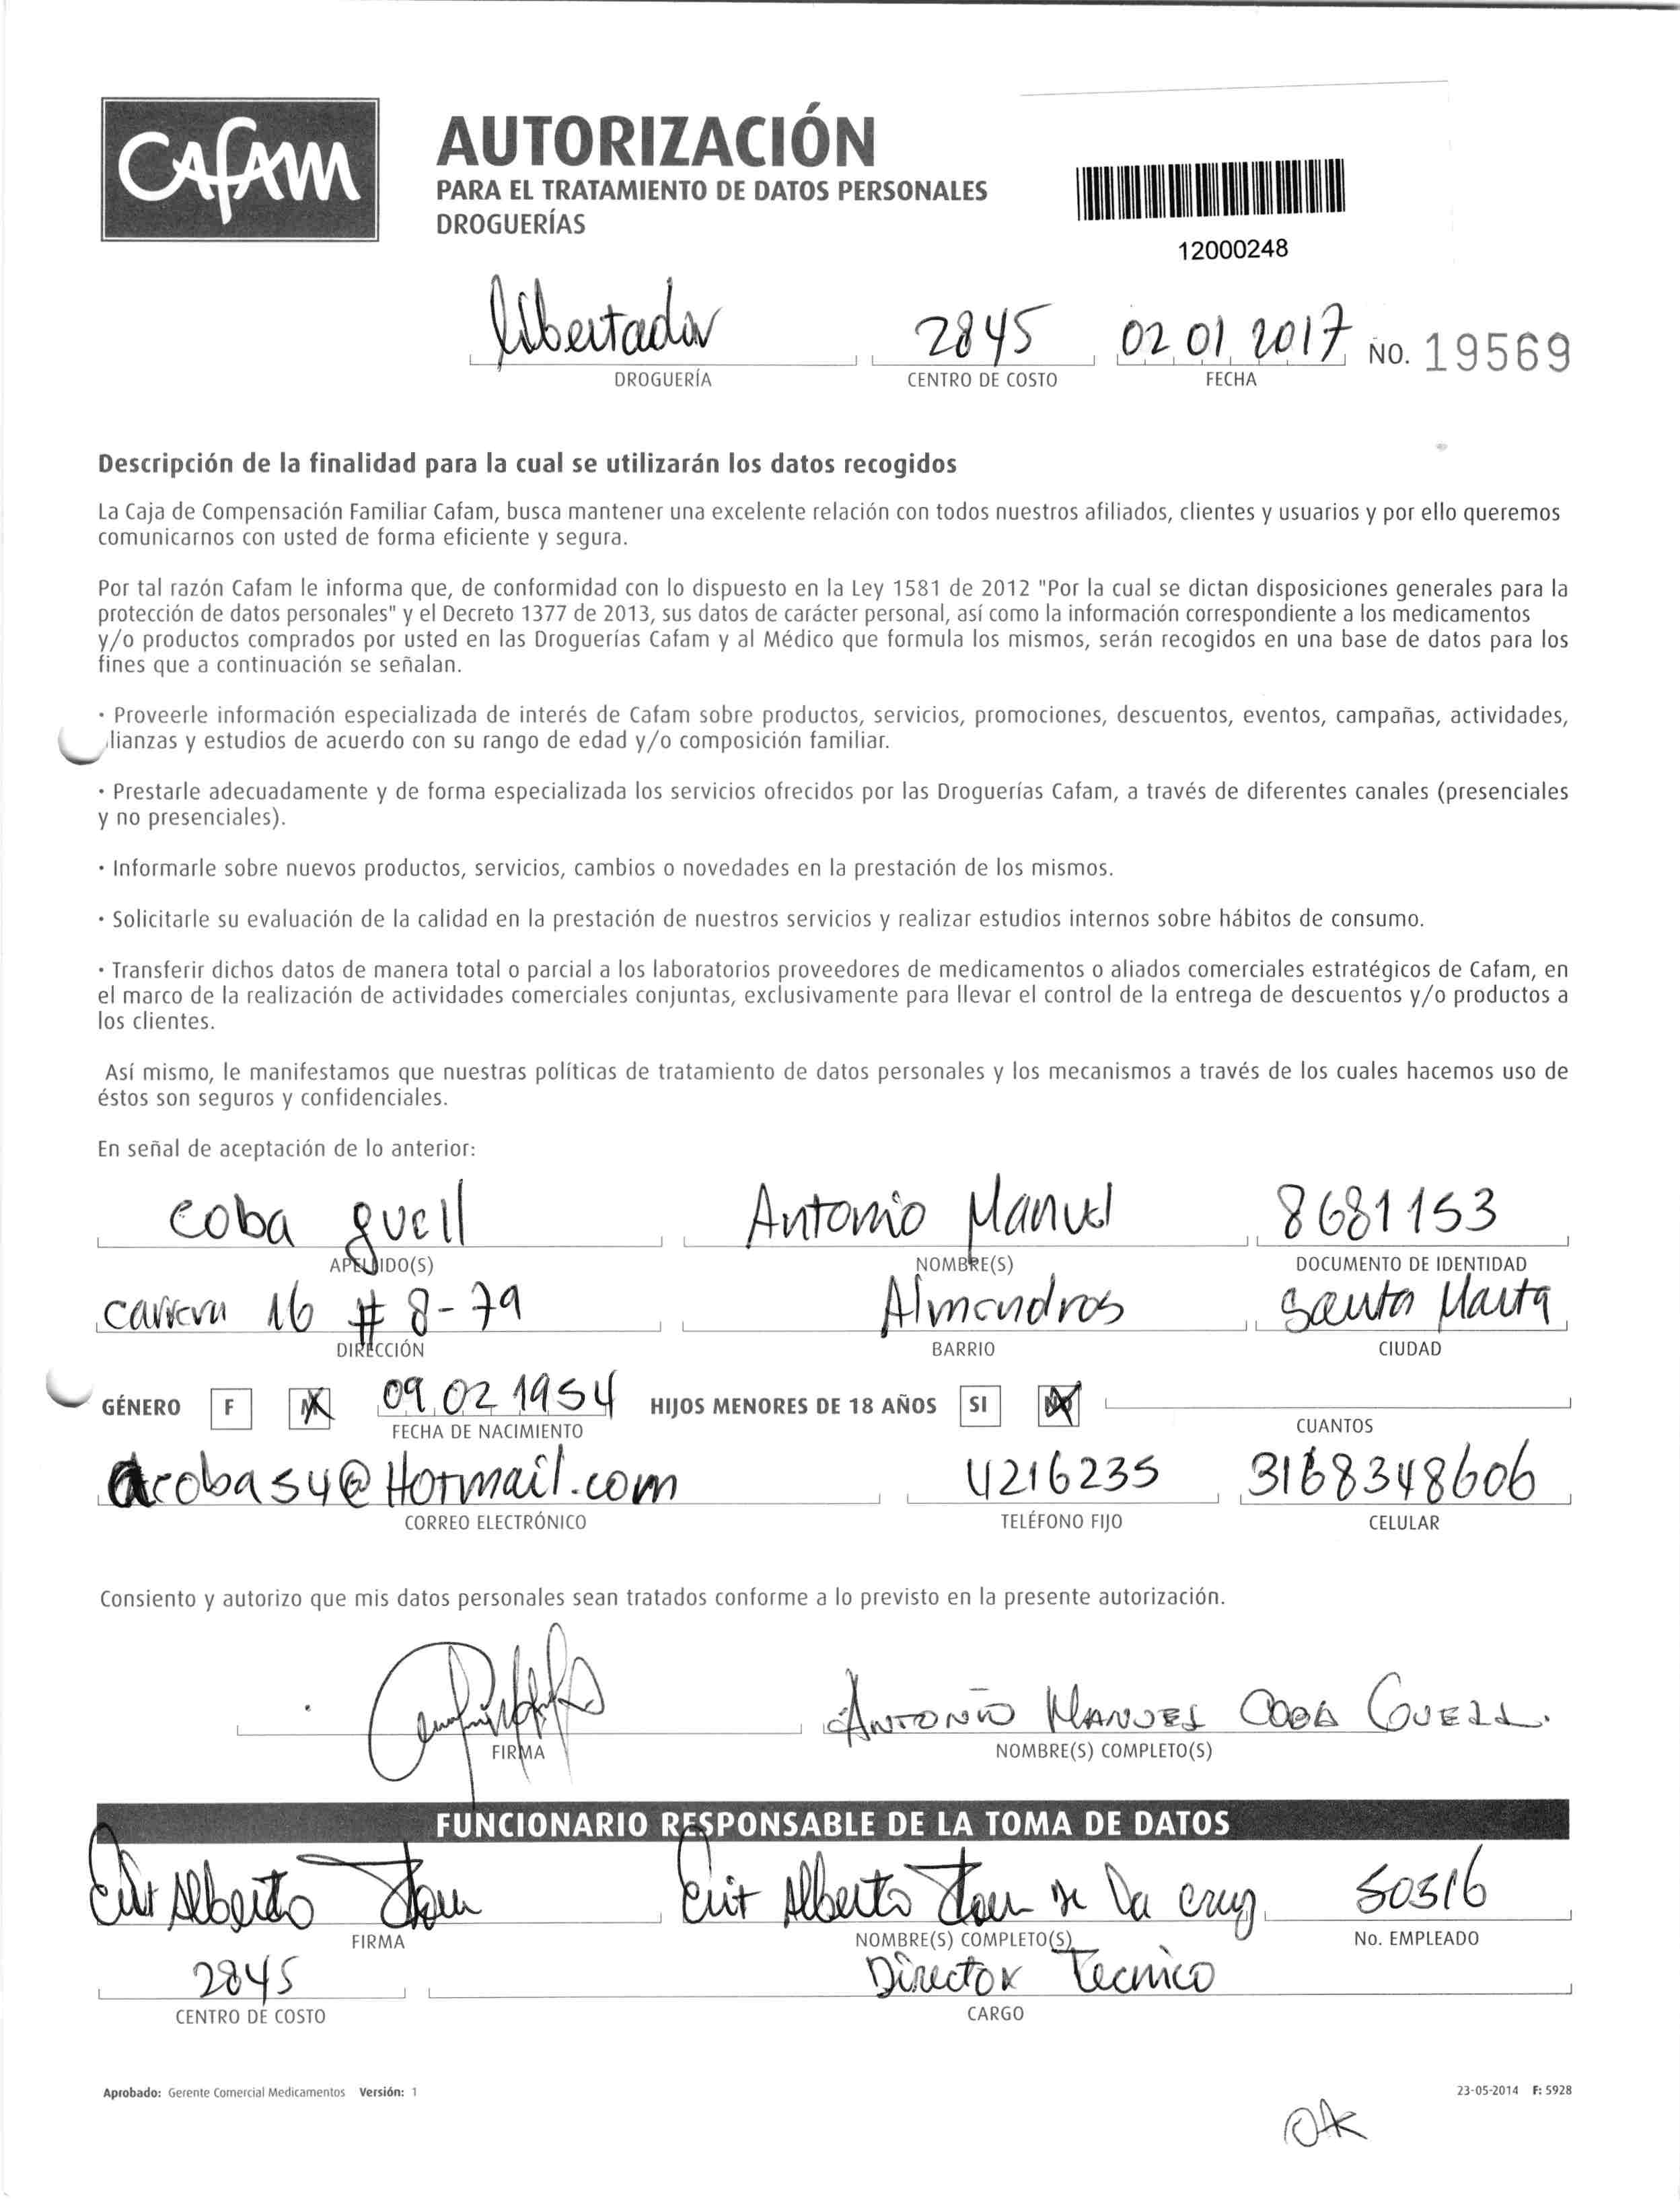 CAFAM
AUTORIZACIÓN
PARA EL TRATAMIENTO DE DATOS PERSONALES
DROGUERÍAS
12000248
libertador 2845 02 01 2017 No. 19569
DROGUERÍA CENTRO DE COSTO FECHA
Descripción de la finalidad para la cual se utilizarán los datos recogidos
La Caja de Compensación Familiar Cafam, busca mantener una excelente relación con todos nuestros afiliados, clientes y usuarios y por ello queremos
comunicarnos con usted de forma eficiente y segura.
Por tal razón Cafam le informa que, de conformidad con lo dispuesto en la Ley 1581 de 2012 "Por la cual se dictan disposiciones generales para la
protección de datos personales" y el Decreto 1377 de 2013, sus datos de carácter personal, así como la información correspondiente a los medicamentos
y/o productos comprados por usted en las Droguerías Cafam y al Médico que formula los mismos, serán recogidos en una base de datos para los
fines que a continuación se señalan.
· Proveerle información especializada de interés de Cafam sobre productos, servicios, promociones, descuentos, eventos, campañas, actividades,
lianzas y estudios de acuerdo con su rango de edad y/o composición familiar.
· Prestarle adecuadamente y de forma especializada los servicios ofrecidos por las Droguerías Cafam, a través de diferentes canales (presenciales
y no presenciales).
· Informarle sobre nuevos productos, servicios, cambios o novedades en la prestación de los mismos.
· Solicitarle su evaluación de la calidad en la prestación de nuestros servicios y realizar estudios internos sobre hábitos de consumo.
· Transferir dichos datos de manera total o parcial a los laboratorios proveedores de medicamentos o aliados comerciales estratégicos de Cafam, en
el marco de la realización de actividades comerciales conjuntas, exclusivamente para llevar el control de la entrega de descuentos y/o productos a
los clientes.
Así mismo, le manifestamos que nuestras políticas de tratamiento de datos personales y los mecanismos a través de los cuales hacemos uso de
éstos son seguros y confidenciales.
En señal de aceptación de lo anterior:
coba guell Antonio Manuel 8681153
APELLIDO(S) NOMBRE(S) DOCUMENTO DE IDENTIDAD
carrera 16 # 8-79 Almendros Santa Marta
DIRECCIÓN BARRIO CIUDAD
GÉNERO F M 09 02 1954 HIJOS MENORES DE 18 AÑOS SI NO
FECHA DE NACIMIENTO CUANTOS
acoba54@Hotmail.com 4216235 3168348606
CORREO ELECTRÓNICO TELÉFONO FIJO CELULAR
Consiento y autorizo que mis datos personales sean tratados conforme a lo previsto en la presente autorización.
ANTONIO MANUEL COBA GUELL.
FIRMA NOMBRE(S) COMPLETO(S)
FUNCIONARIO RESPONSABLE DE LA TOMA DE DATOS
Alberto Alberto de la cruz 50516
FIRMA NOMBRE(S) COMPLETO(S) No. EMPLEADO
2845 Director Tecnico
CENTRO DE COSTO CARGO
Aprobado: Gerente Comercial Medicamentos Versión: 1 23-05-2014 F: 5928
Ok